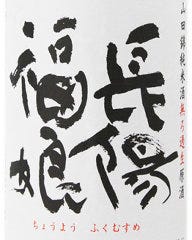 山田錦純米酒無ろ過生原酒
長陽
福娘
ちょうよう ふくむすめ